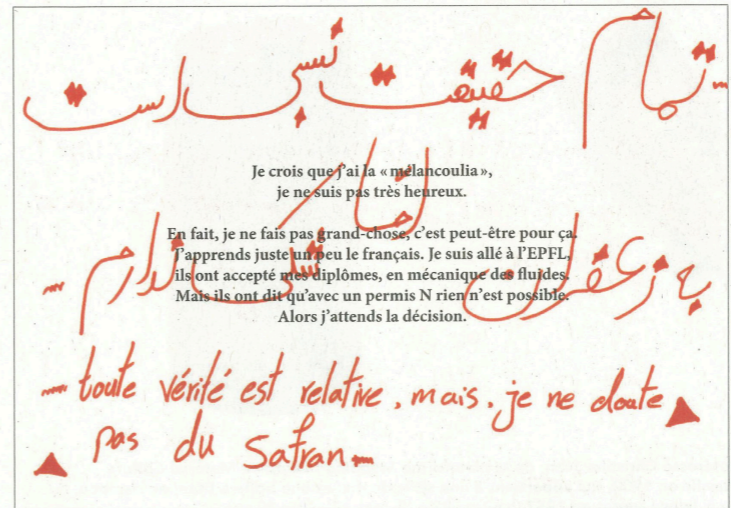 تمام حقیقت نسبی است
Je crois que j'ai la « mélancoulia »,
je ne suis pas très heureux.
En fait, je ne fais pas grand-chose, c'est peut-être pour ça.
J'apprends juste un peu le français. Je suis allé à l'EPFL,
ils ont accepté mes diplômes, en mécanique des fluides.
Mais ils ont dit qu'avec un permis N rien n'est possible.
Alors j'attends la décision.
به زعفران شکی ندارم
toute vérité est relative, mais, je ne doute
pas du safran